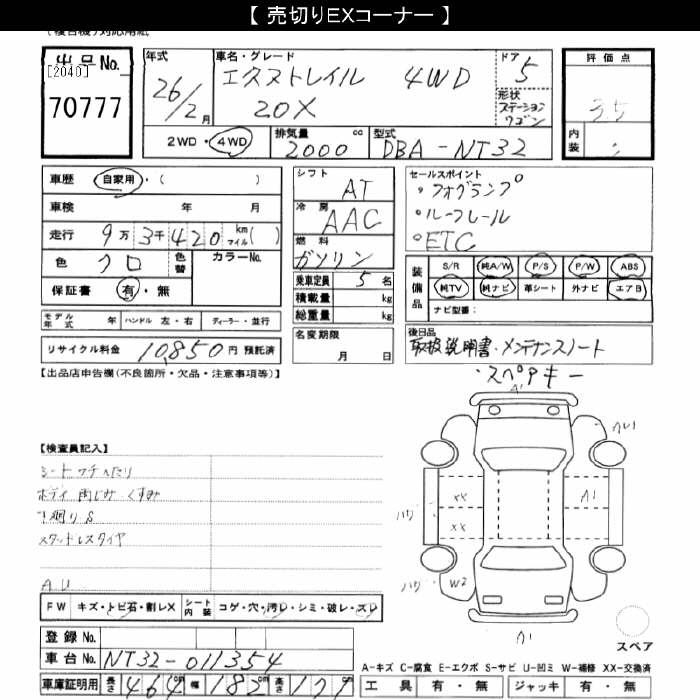 【 売切りEXコーナー 】
出品No.
[2040]
70777
年式
26/2月
車名・グレード
エクストレイル 4WD
20X
ドア
5
形状
ステーション
ワゴン
評価点
3.5
内装
2WD・4WD
排気量 cc
2000
型式
DBA-NT32
車歴 自家用・( )
車検 年 月
走行 9万3千420 km マイル( )
色 クロ 色替 カラーNo.
保証書 有・無
モデル年式 年 ハンドル 左・右 ディーラー・並行
リサイクル料金 10,850円 預託済
シフト
AT
冷房
AAC
燃料
ガソリン
乗車定員 5名
積載量 kg
総重量 kg
名変期限
月 日
セールスポイント
・フォグランプ
・ルーフレール
・ETC
装備品
S/R 純A/W P/S P/W ABS
純TV 純ナビ 革シート 外ナビ エアB
ナビ型番:
後日品
取扱説明書・メンテナンスノート
・スペアキー
【出品店申告欄(不良箇所・欠品・注意事項等)】
【検査員記入】
シートフチヘたり
ボディ 雨じみ くすみ
下廻りS
スタッドレスタイヤ
AU
FW キズ・トビ石・割レX シート内装 コゲ・穴・汚レ・シミ・破レ・スレ
登録No.
車台No. NT32-011354
車庫証明用 長さ 464cm 幅 182cm 高さ 177
A1
XX
XX
A1
ハゲ
ハゲ
W2
A1
スペア
A-キズ C-腐食 E-エクボ S-サビ U-凹ミ W-補修 XX-交換済
工具 有・無 ジャッキ 有・無